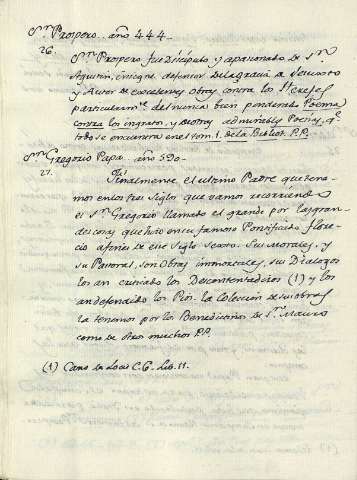 Sn. Prospero.. año 444..
26. Sn. Prospero fue Discipulo y apasionado de Sn.
Agustin, insigne defensor de la gracia de Jesucristo
y Autor de excelentes obras contra los
particularmte. del nunca bien ponderado Poema
contra los ingratos, y de otras admirables Poesias, qe.
todo se encuentra en el tom. 1. de la Bibliot. P.P.
Sn. Gregorio Papa. año 590..
27. Finalmente el ultimo Padre que tene-
mos en los tres siglos que vamos recorriendo
el Sn. Gregorio llamado el grande por las gran-
des cosas que hizo en su famoso Pontificado flore-
cio a fines de ese siglo sexto. Sus Morales, y
su Pastoral, son obras inmortales, sus Dialogos
los an criticado los Descontentadizos (1) y los
an defendido los Pios. la Coleccion de sus obras
la tenemos por los Benedictinos de Sn. Mauro
como de otros muchos P.P.
(1) Cano de Locis C. 6. Lib. 11.